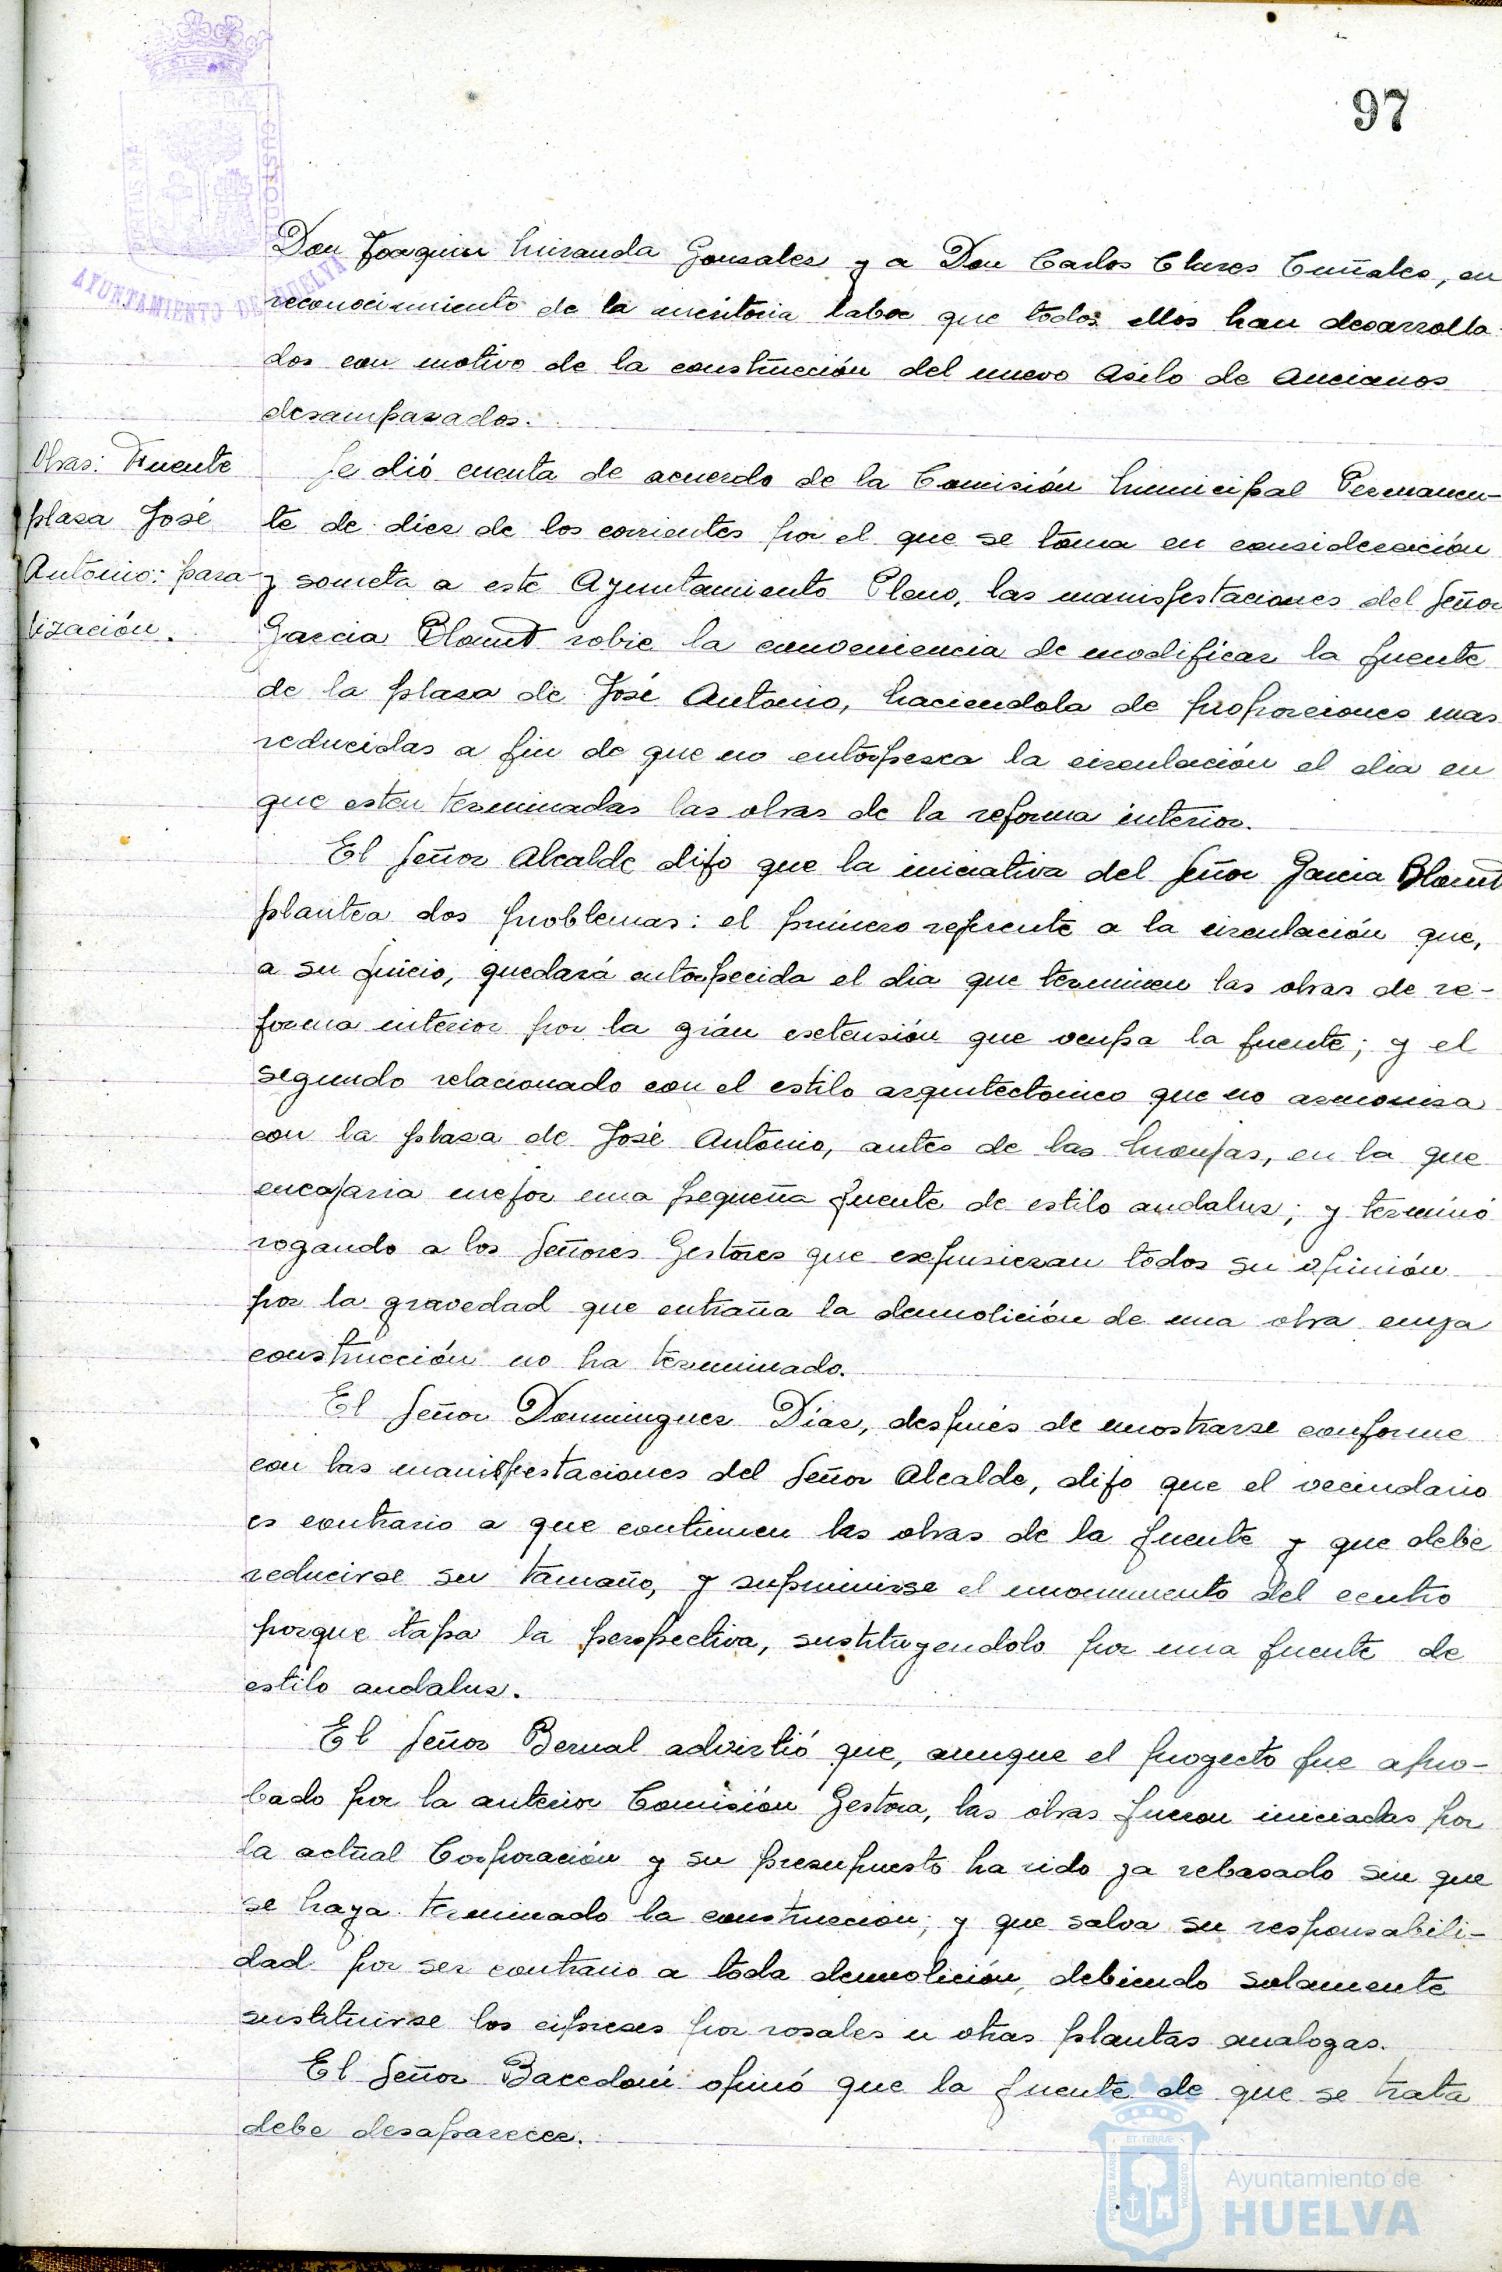 97
AYUNTAMIENTO DE HUELVA
Don Joaquin Miranda Gonzalez y a Don Carlos Clures Cuñales, en
reconocimiento de la meritoria labor que todos ellos han desarrolla-
dos con motivo de la construcción del nuevo Asilo de Ancianos
desamparados.
Obras: Fuente
plaza José
Antonio: para-
lización.
Se dió cuenta de acuerdo de la Comisión Municipal Permanen-
te de diez de los corrientes por el que se toma en consideración
y someta a este Ayuntamiento Pleno, las manisfestaciones del Señor
Garcia Blount sobre la conveniencia de modificar la fuente
de la plaza de José Antonio, haciendola de proporciones mas
reducidas a fin de que no entorpezca la circulación el dia en
que esten terminadas las obras de la reforma interior.
El Señor Alcalde dijo que la iniciativa del Señor Garcia Blount
plantea dos problemas: el primero referente a la circulación que,
a su juicio, quedará entorpecida el dia que terminen las obras de re-
forma interior por la grán exctensión que ocupa la fuente; y el
segundo relacionado con el estilo arquitectonico que no armoniza
con la plaza de José Antonio, antes de las Monjas, en la que
encajaria mejor una pequeña fuente de estilo andaluz; y terminó
rogando a los Señores Gestores que expusieran todos su opinión
por la gravedad que entraña la demolición de una obra cuya
construcción no ha terminado.
El Señor Dominguez Díaz, después de mostrarse conforme
con las manisfestaciones del Señor Alcalde, dijo que el vecindario
es contrario a que continuen las obras de la fuente y que debe
reducirse su tamaño, y suprimirse el monumento del centro
porque tapa la perspectiva, sustituyendolo por una fuente de
estilo andaluz.
El Señor Bernal advirtió que, aunque el proyecto fue apro-
bado por la anterior Comisión Gestora, las obras fueron iniciadas por
la actual Corporación y su presupuesto ha sido ya rebasado sin que
se haya terminado la construccion; y que salva su responsabili-
dad por ser contrario a toda demolición, debiendo solamente
sustituirse los cipreses por rosales u otras plantas analogas.
El Señor Bacedoni opinó que la fuente de que se trata
debe desaparecer.
Ayuntamiento de
HUELVA